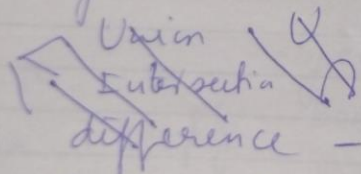 Union
Intersectio
difference -